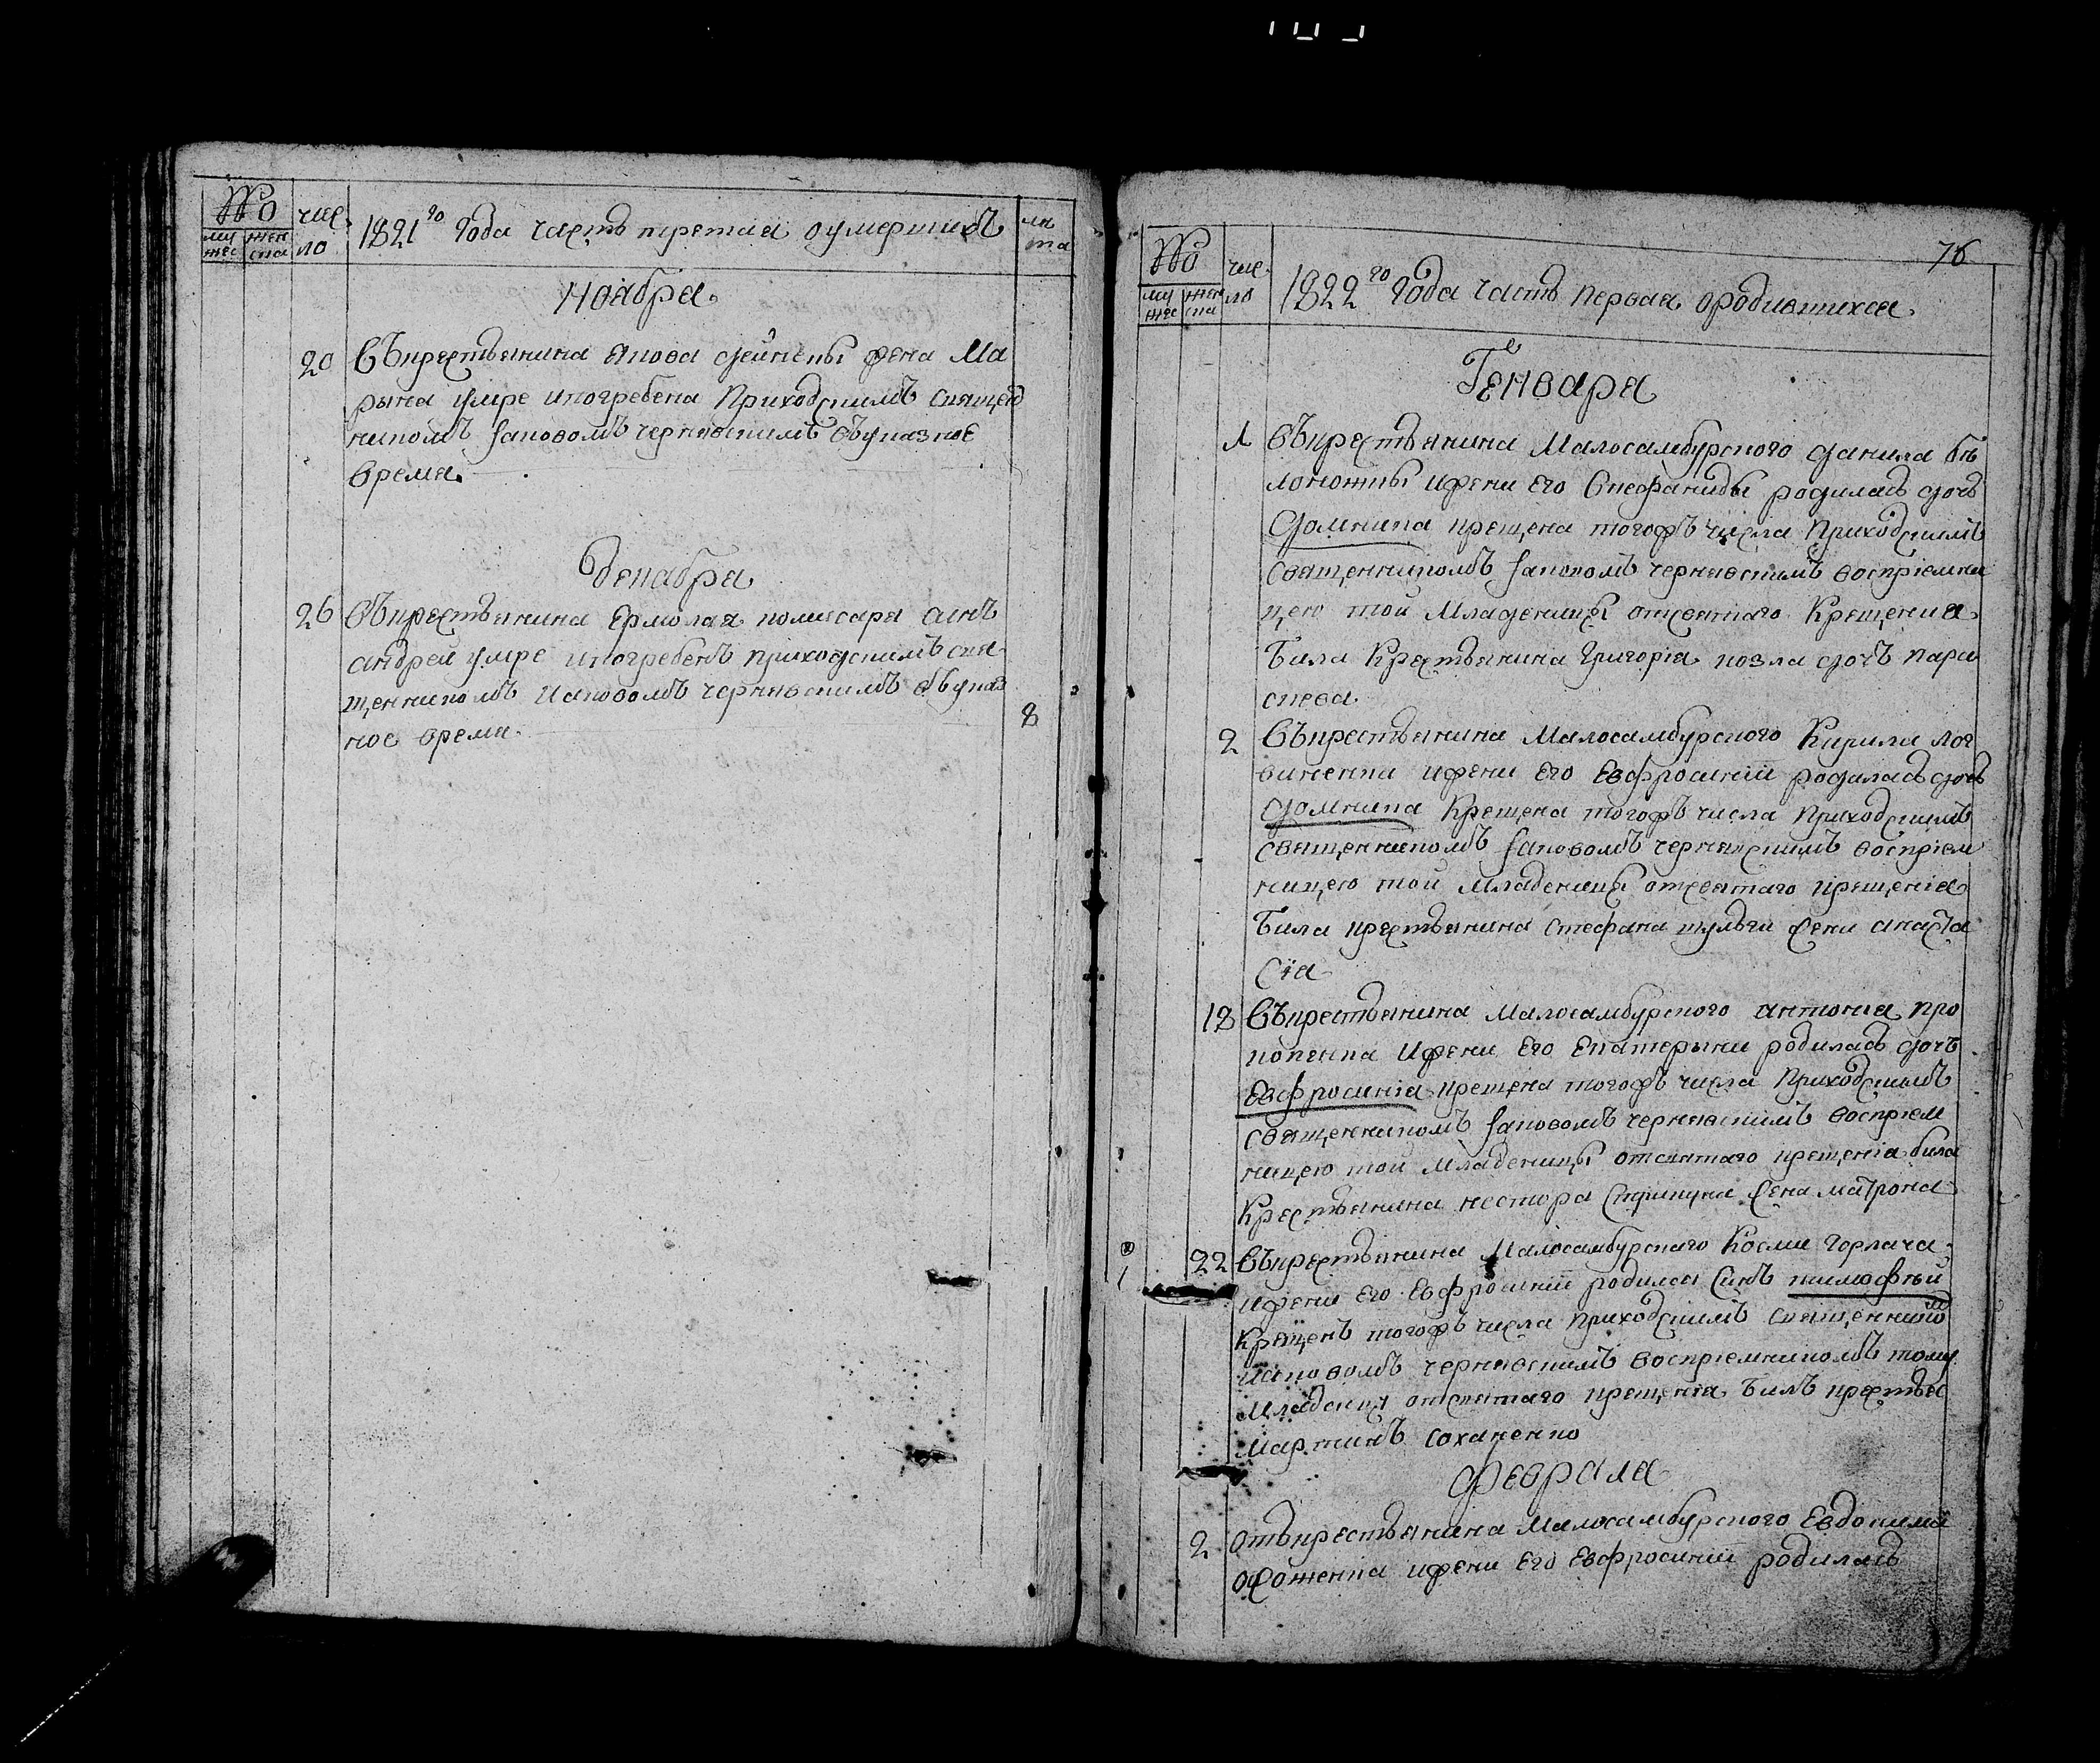 №
му жес
жен ска
чис ло
1821го Года часть третая оумершихъ
лѣ та
Ноабра
20 Въкрестьянина Якова дейнеки жена Ма
рына умре ипогребена Приходскимъ Священ
никомъ Іаковомъ чернявскимъ въуказное
время.
Декабра
26 Въкрестьянина Ермолая комисара синъ
андрей умре ипогребенъ приходскимъ свя
щенникомъ Иаковомъ чернявскимъ въуказ
ное время.
8
76
№
му жес
жен ска
чис ло
1822го Года часть первая ородившихся
Генваря
1 Въкрестьянина Малосамбурского данила бѣ
локонки ижени Его Стефаниды родилась дочь
Домника крещена тогожъ числа Приходскимъ
Священникомъ Іаковомъ чернявскимъ воспріемни
цею той Младеницы отсвятаго Крещения
Била Крестьянина Григоріа козла дочъ пара
скева
2 Въкрестьянина Малосамбурского Кирила лог
виненка ижени Его Евфросиніи родилась дочь
домника Крещена тогожъ числа Приходскимъ
священникомъ Іаковомъ чернявскимъ воспріем
ницею той младеницы отсвятаго крещеніа
Била крестьянина стефана шульги жени анаста
сіа
18 Въкрестьянина Малосамбурского антоніа про
копенка Ижени Его Екатерыни родилась дочъ
Евфросиніа крещена тогожъ числа Приходскимъ
священникомъ Іаковомъ чернявскимъ воспріем
ницею той младеницы отсвятаго крещеніа била
Крестьянина нестора жена матрона
22 Въкрестьянина Малосамбурскаго Косми Горкача
ижени Его Евфросиніи родился Синъ тимофтей
Крещенъ тогожъ числа приходскимъ священником
иаковомъ чернявскимъ воспріемникомъ тому
Младенцу отсвятаго крещеніа Билъ крестья
мартинъ соханенко
Февраля
2 Отъкрестьянина Малосамбурского Евдокима
ижени Его Евфросиніи родилась